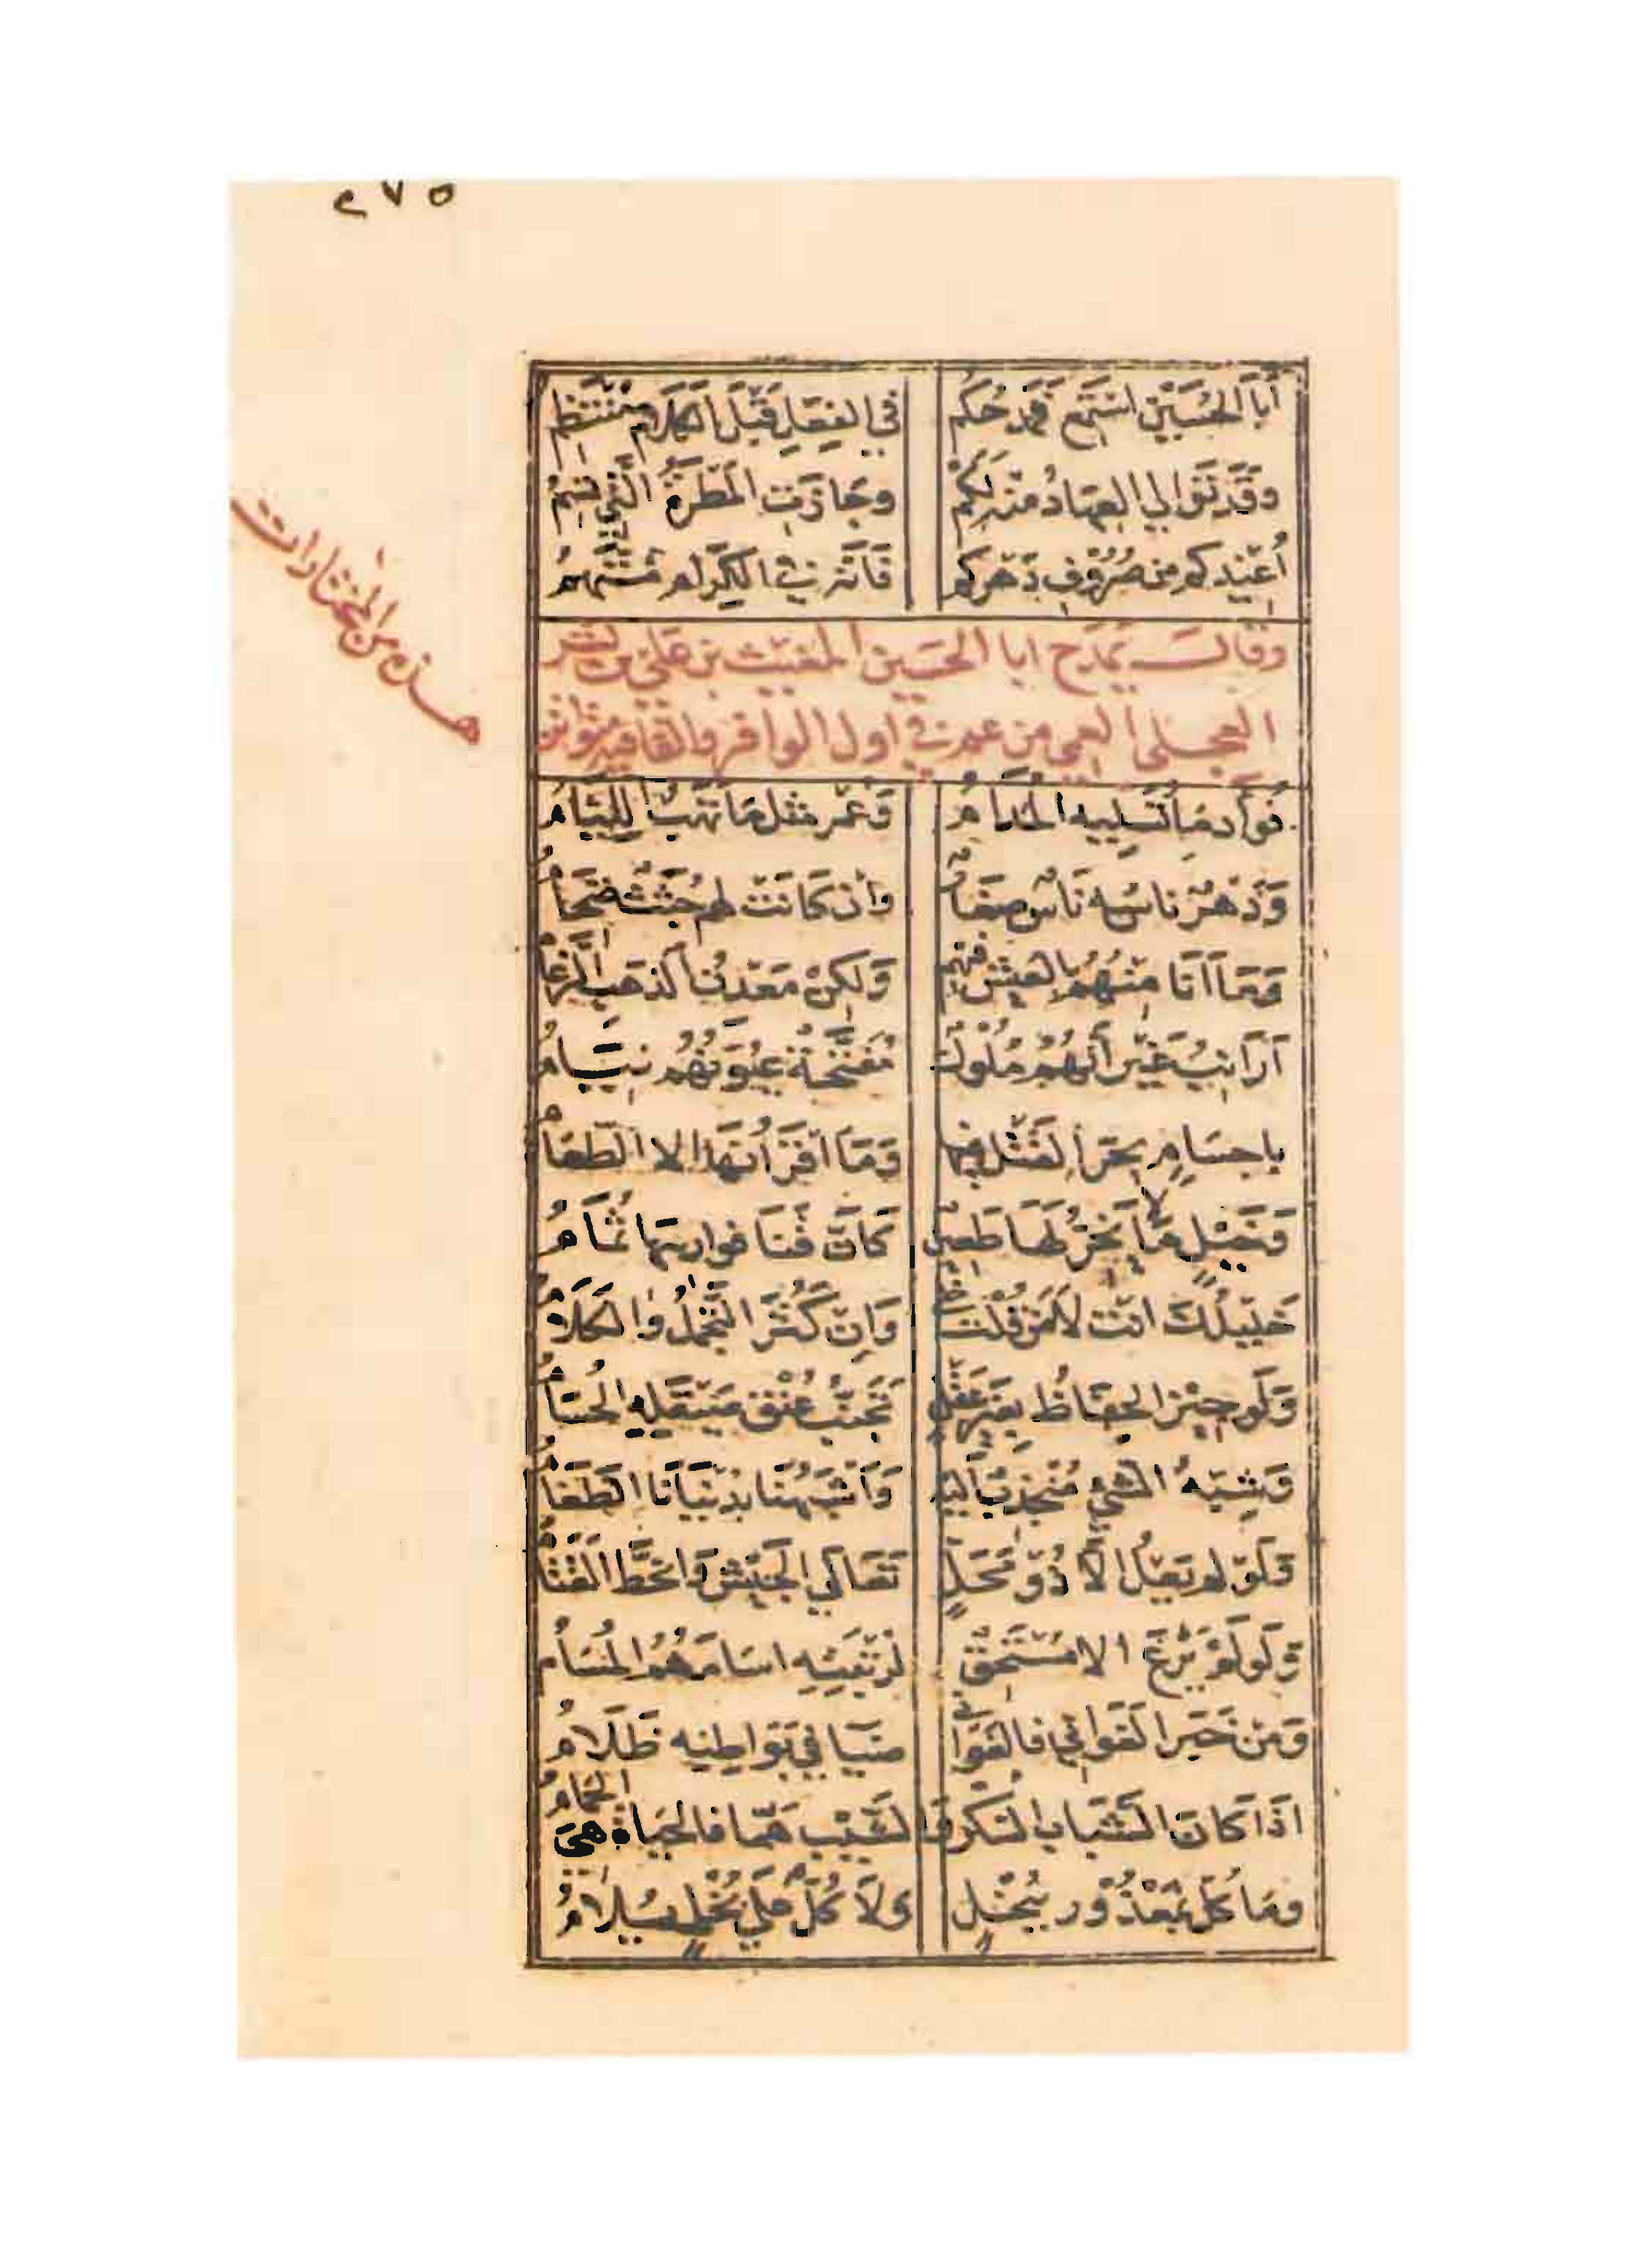 ٢٧٥
أبا الحسين استمع فمدحكم في الفعل قبل الكلام منتظم
وقد توالى العهاد منه لكم وجادت المطرة التي تسم
أعيذكم من صروف دهركم فانه في الكرام متهم
هذه من المختارات
وقال يمدح ابا الحسين المغيث بن على بن بشر
العجلى العمى من عم في اول الوافر والقافية متواتر
فؤاد ما تسليه المدام وعمر مثل ما تهب اللئام
ودهر ناسه ناس صغار وان كانت لهم جثث ضخام
وما انا منهم بالعيش فيهم ولكن معدن الذهب الرغام
ارانب غير أنهم ملوك مفتحة عيونهم نيام
باجسام يحر القتل فيها وما اقرانها الا الطعام
وخيل لا يخر لها طعين كان قنا فوارسها ثمام
خليلك انت لا من قلت خلى وان كثر التجمل والكلام
ولو حيز الحفاظ بغير عقل تجنب عنق صيقله الحسام
وشبه الشيء منجذب اليه وأشبهنا بدنيانا الطغام
ولو لم يعل الا ذو محل تعالى الجيش وانحط القتام
ولو لم يرع الا مستحق لرتبته اسامهم المسام
ومن خبر الغواني فالغواني ضيا في بواطنه ظلام
اذا كان الشباب السكر والشيب هما فالحياة هي الحمام
وما كل بمعذور ببخل ولا كل على بخل يلام